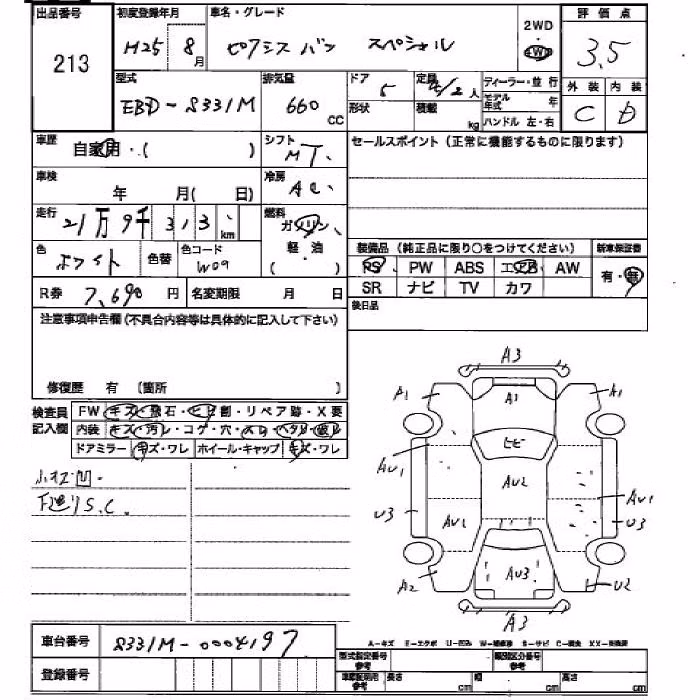 出品番号 初度登録年月 車名・グレード 2WD 評価点
213 H25 8月 ピクシス バン スペシャル 4WD 3.5
型式 排気量 ドア 定員 人 ディーラー・並行 外装 内装
EBD-S331M 660 CC 5 4/2 モデル年式 年 C D
形状 積載 kg ハンドル 左・右
車歴 自家用・( ) シフト MT セールスポイント(正常に機能するものに限ります)
車検 年 月( 日) 冷房 AC
走行 21万9千313 km 燃料 ガソリン、
軽・油
( )
色 ホワイト 色替 色コード W09
装備品(純正品に限り○をつけてください) 新車保証書
PS PW ABS エアB AW 有・無
SR ナビ TV カワ
R券 7,690円 名変期限 月 日 後日品
注意事項申告欄(不具合内容等は具体的に記入して下さい)
修復歴 有 (箇所 )
検査員記入欄 FW キズ・飛石・ヒビ割・リペア跡・X要
内装 キズ・汚レ・コゲ・穴・スレ・ヘタリ・破レ
ドアミラー キズ・ワレ ホイール・キャップ キズ・ワレ
小キズ凹・
下廻りS.C.
A3
A1 A1 A1
ヒビ
AU1 AU2 AU1
U3 AU1 U3
A2 AU3 U2
A3
車台番号 S331M-0004197
A-キズ E-エクボ U-凹み W-補修跡 S-サビ C-腐食 XX-交換済
登録番号 型式指定番号 参考 類別区分番号 参考
車庫証明用 参考 長さ cm 幅 cm 高さ cm